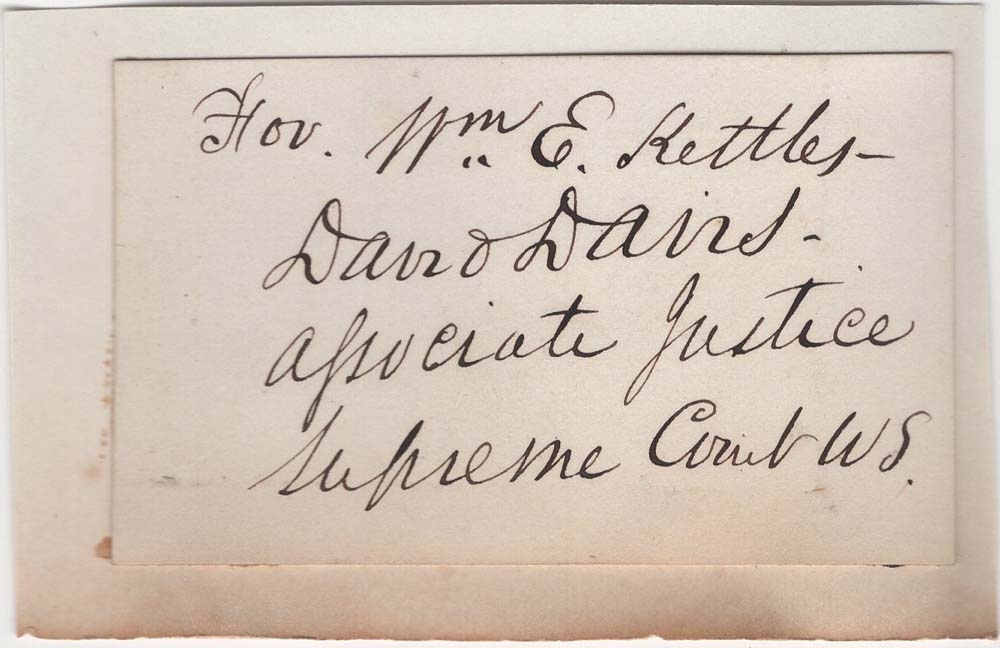 For. Wm. E. Kettles—
David Davis.
associate Justice
Supreme Court US.